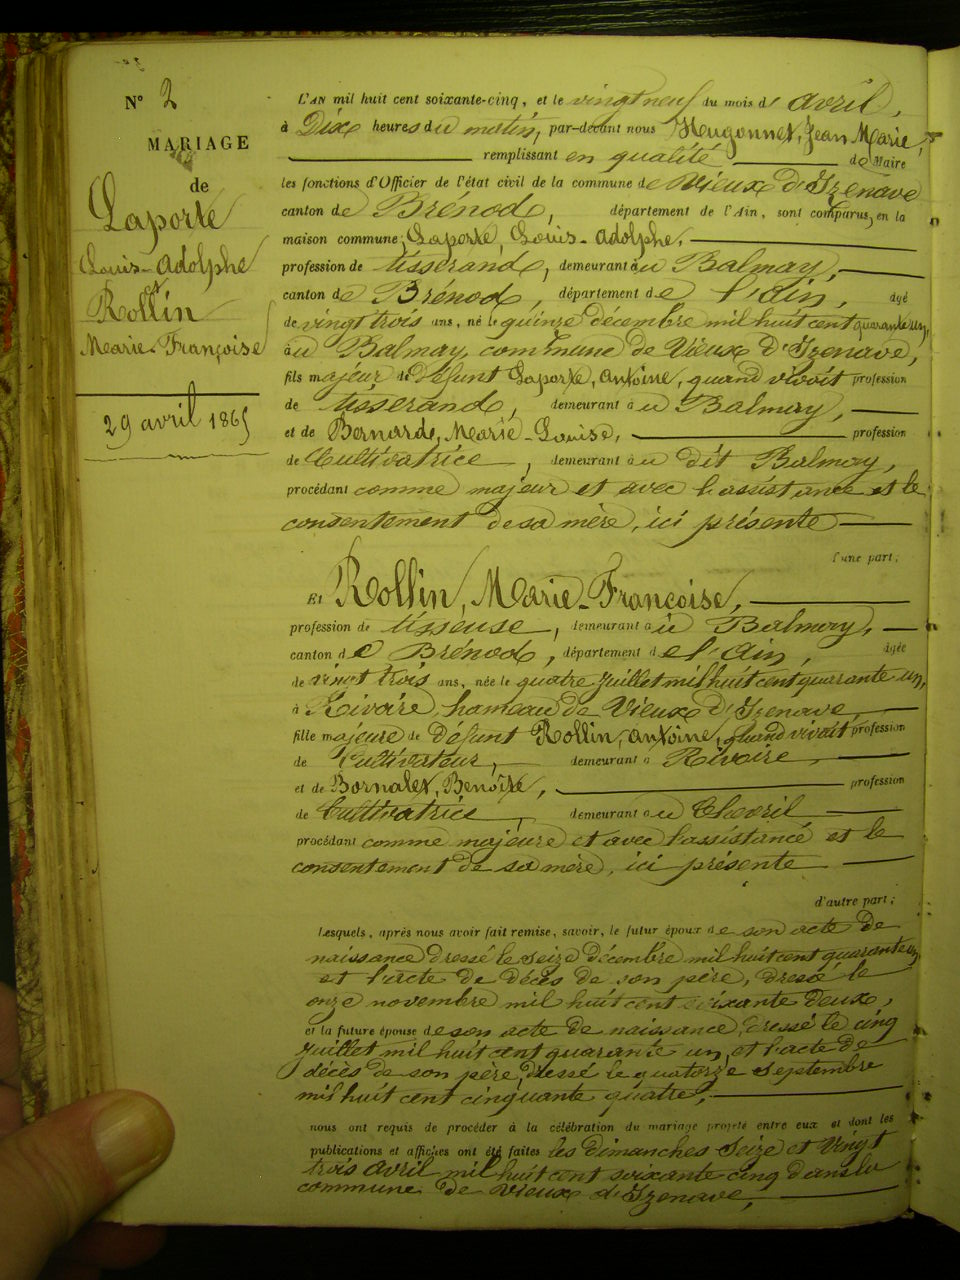 N° 2
MARIAGE
de
Laporte
Louis-Adolphe
et
Rollin
Marie-Françoise
29 avril 1865
L'AN mil huit cent soixante-cinq, et le vingt neuf du mois d' avril,
à Dix heures du matin, par-devant nous Hugonnet, Jean Marie,
remplissant en qualité de Maire
les fonctions d'Officier de l'état civil de la commune de Vieux d'Izenave
canton de Brénod, département de l'Ain, sont comparus, en la
maison commune; Laporte, Louis-Adolphe,
profession de tisserand, demeurant au Balmay,
canton de Brénod, département de l'ain, âgé
de vingt trois ans, né le quinze décembre mil huit cent quarante un,
au Balmay, commune de Vieux d'Izenave,
fils majeur de défunt Laporte, Antoine, quand vivoit profession
de tisserand, demeurant au Balmay,
et de Bernarde, Marie-Louise, profession
de Cultivatrice, demeurant au dit Balmay,
procédant comme majeur et avec l'assistance et le
consentement de sa mère, ici présente
d'une part;
Et Rollin, Marie-Françoise,
profession de tisseuse, demeurant au Balmay,
canton de Brénod, département de l'ain, âgée
de vingt trois ans, née le quatre juillet mil huit cent quarante un,
à Rivoire, hameau de Vieux d'Izenave,
fille majeure de défunt Rollin, Antoine, quand vivait profession
de Cultivateur, demeurant à Rivoire,
et de Bornalet, Benoîte, profession
de Cultivatrice, demeurant au
procédant comme majeure et avec l'assistance et le
consentement de sa mère, ici présente
d'autre part;
Lesquels, après nous avoir fait remise, savoir, le futur époux de son acte de
naissance dressé le seize décembre mil huit cent quarante un,
et l'acte de décès de son père, dressé le
onze novembre mil huit cent soixante deux,
et la future épouse de son acte de naissance, dressé le cinq
juillet mil huit cent quarante un, et l'acte de
décès de son père, dressé le quatorze septembre
mil huit cent cinquante quatre,
nous ont requis de procéder à la célébration du mariage projeté entre eux et dont les
publications et affiches ont été faites les dimanches seize et vingt
trois avril mil huit cent soixante cinq dans la
commune de Vieux d'Izenave,